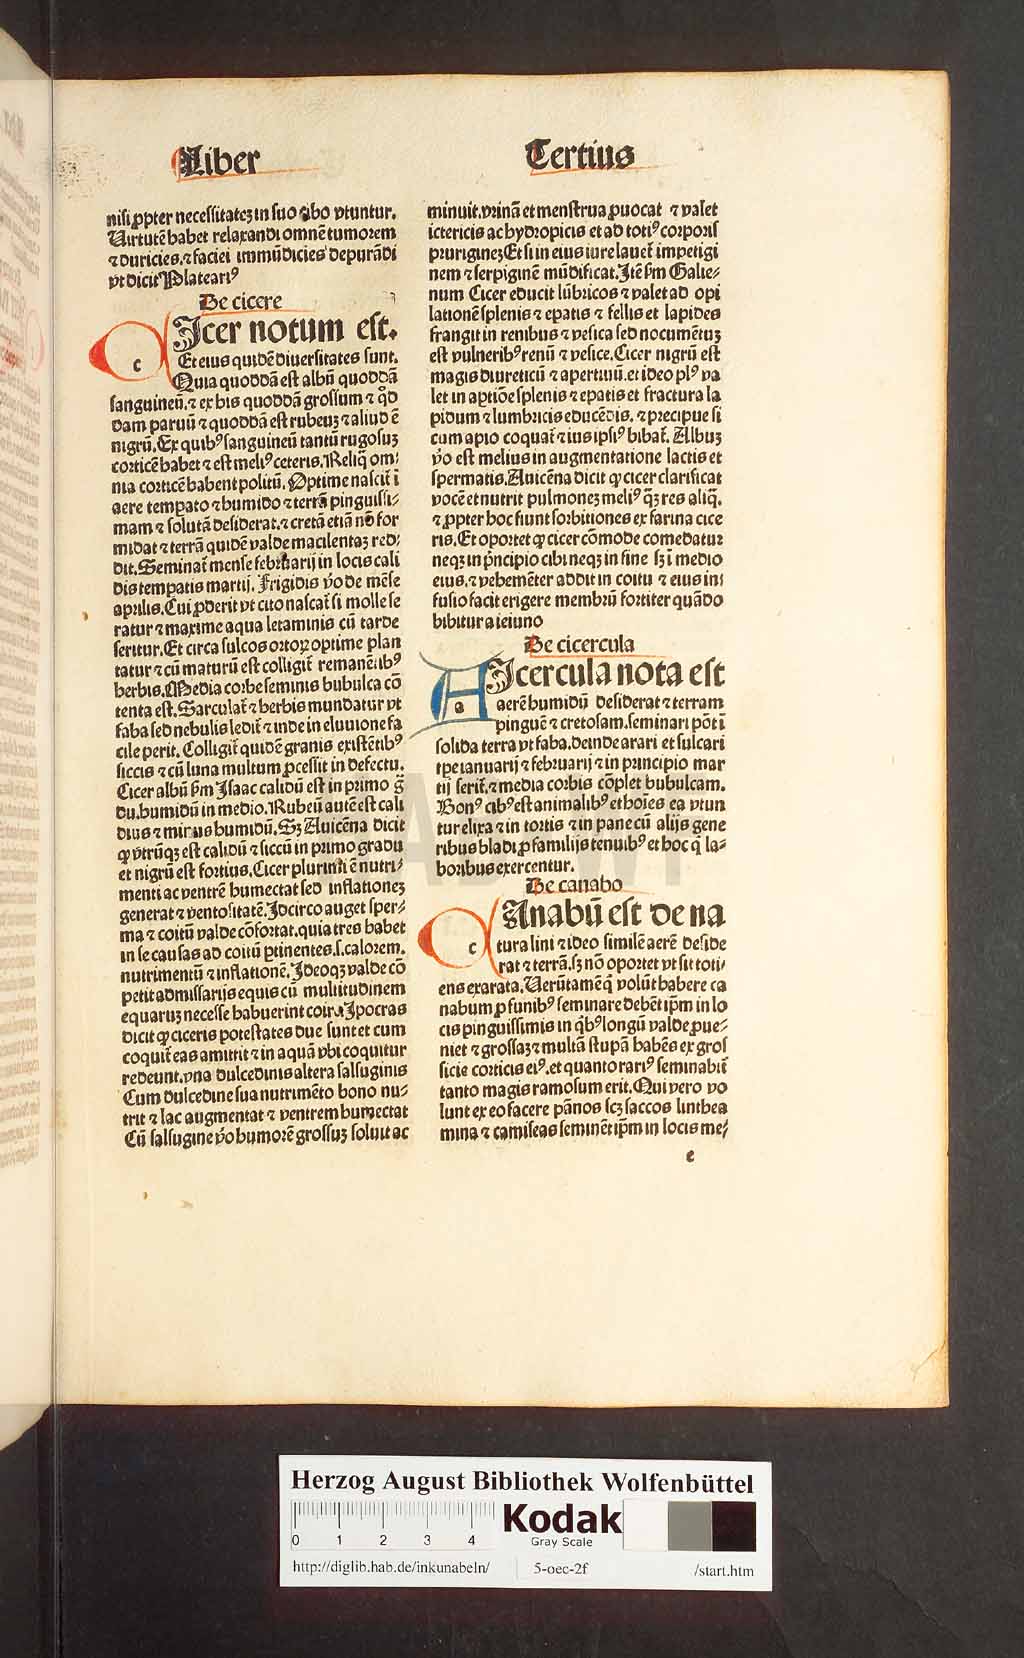 Liber
Tertius
nisi ꝓpter necessitateꝫ in suo cibo vtuntur.
Uirtutē habet relaxandi omnē tumorem
⁊ duricies.⁊ faciei immūdicies depurādi
vt dicit Plateariꝰ
De cicere
c
Icer notum est.
Et eius quidē diuersitates sunt.
Quia quoddā est albū quoddā
sanguineū.⁊ ex his quoddā grossum ⁊ qͦd
dam paruū ⁊ quoddā est rubeuꝫ ⁊ aliud ē
nigrū. Ex quibꝰ sanguineū tantū rugosuꝫ
corticē habet ⁊ est meliꝰ ceteris. Reliq̄ om-
nia corticē habent politū. Optime nascit̄ ī
aere temꝑato ⁊ humido ⁊ terrā pinguissi-
mam ⁊ solutā desiderat.⁊ cretā etiā nō for
midat ⁊ terrā quidē valde macilentaꝫ red-
dit. Seminat̄ mense februarij in locis cali
dis temꝑatis martij. Frigidis v̄o de mēse
aprilis. Cui ꝓderit vt cito nascat̄ si molle se
ratur ⁊ maxime aqua letaminis cū tarde
seritur. Et circa sulcos ortoꝝ optime plan
tatur ⁊ cū maturū est colligit̄ remanētibꝰ
herbis. Media corbe seminis bubulca cō
tenta est. Sarculat̄ ⁊ herbis mundatur vt
faba sed nebulis ledit̄ ⁊ inde in eluuione fa
cile perit. Colligit̄ quidē granis existētibꝰ
siccis ⁊ cū luna multum ꝓcessit in defectu.
Cicer albū ẜm Isaac calidū est in primo g̃
du. humidū in medio. Rubeū autē est cali
dius ⁊ minus humidū. Sꝫ Auicēna dicit
ꝙ vtrūqꝫ est calidū ⁊ siccū in primo gradu
et nigrū est fortius. Cicer plurimi ē nutri-
menti ac ventrē humectat sed inflationeꝫ
generat ⁊ ventositatē. Idcirco auget sper-
ma ⁊ coitū valde cōfortat. quia tres habet
in se causas ad coitū ꝑtinentes.s.calorem.
nutrimentū ⁊ inflationē. Ideoqꝫ valde cō
petit admissarijs equis cū multitudinem
equaruꝫ necesse habuerint coire. Ipocras
dicit ꝙ ciceris potestates due sunt et cum
coquit̄ eas amittit ⁊ in aquā vbi coquitur
redeunt. vna dulcedinis altera salsuginis
Cum dulcedine sua nutrimēto bono nu-
trit ⁊ lac augmentat ⁊ ventrem humectat
Cū salsugine v̄o humorē grossuꝫ soluit ac
minuit. vrinā et menstrua ꝓuocat ⁊ valet
ictericis ac hydropicis et ad totiꝰ corporis
prurigineꝫ Et si in eius iure lauet̄ impetigi
nem ⁊ serpiginē mūdificat. Itē ẜm Galie-
num Cicer educit lūbricos ⁊ valet ad opi
lationē splenis ⁊ epatis ⁊ fellis et lapides
frangit in renibus ⁊ vesica sed nocumētuꝫ
est vulneribꝰ renū ⁊ vesice. Cicer nigrū est
magis diureticū ⁊ apertiuū. et ideo plꝰ va
let in aptiōe splenis ⁊ epatis et fractura la
pidum ⁊ lumbricis educēdis. ⁊ precipue si
cum apio coquat̄ ⁊ ius ipsiꝰ bibat̄. Albuꝫ
v̄o est melius in augmentatione lactis et
spermatis. Auicēna dicit ꝙ cicer clarificat
vocē et nutrit pulmoneꝫ meliꝰ q̄ꝫ res aliq̄.
⁊ ꝓpter hoc fiunt sorbitiones ex farina cice
ris. Et oportet ꝙ cicer cōmode comedatur
neqꝫ in p̄ncipio cibi neqꝫ in fine sꝫ ī medio
eius.⁊ vehemēter addit in coitu ⁊ eius in-
fusio facit erigere membrū fortiter quādo
bibitur a ieiuno
De cicercula
a
Icercula nota est
aerē humidū desiderat ⁊ terram
pinguē ⁊ cretosam. seminari pōt ī
solida terra vt faba. deinde arari et sulcari
tꝑe ianuarij ⁊ februarij ⁊ in principio mar
tij serit̄.⁊ media corbis cōplet bubulcam.
Bonꝰ cibꝰ est animalibꝰ et hoīes ea vtun
tur elixa ⁊ in tortis ⁊ in pane cū alijs gene
ribus bladi ꝓ familijs tenuibꝰ et hoc q̄ la-
boribus exercentur.
De canabo
c
Anabū est de na
tura lini ⁊ ideo similē aerē deside
rat ⁊ terrā. sꝫ nō oportet vt sit toti-
ens exarata. Uerūtamē q̄ volūt habere ca
nabum ꝓ funibꝰ seminare debēt ip̄m in lo
cis pinguissimis in q̄bꝰ longū valde ꝓue-
niet ⁊ grossaꝫ ⁊ multā stupā habēs ex gros
sicie corticis eiꝰ. et quanto rariꝰ seminabit̄
tanto magis ramosum erit. Qui vero vo
lunt ex eo facere pānos scꝫ saccos linthea
mina ⁊ camiseas seminēt ip̄m in locis me-
e
HAB WF
Herzog August Bibliothek Wolfenbüttel
0 1 2 3 4
Kodak
Gray Scale
http://diglib.hab.de/inkunabeln/ 5-oec-2f /start.htm